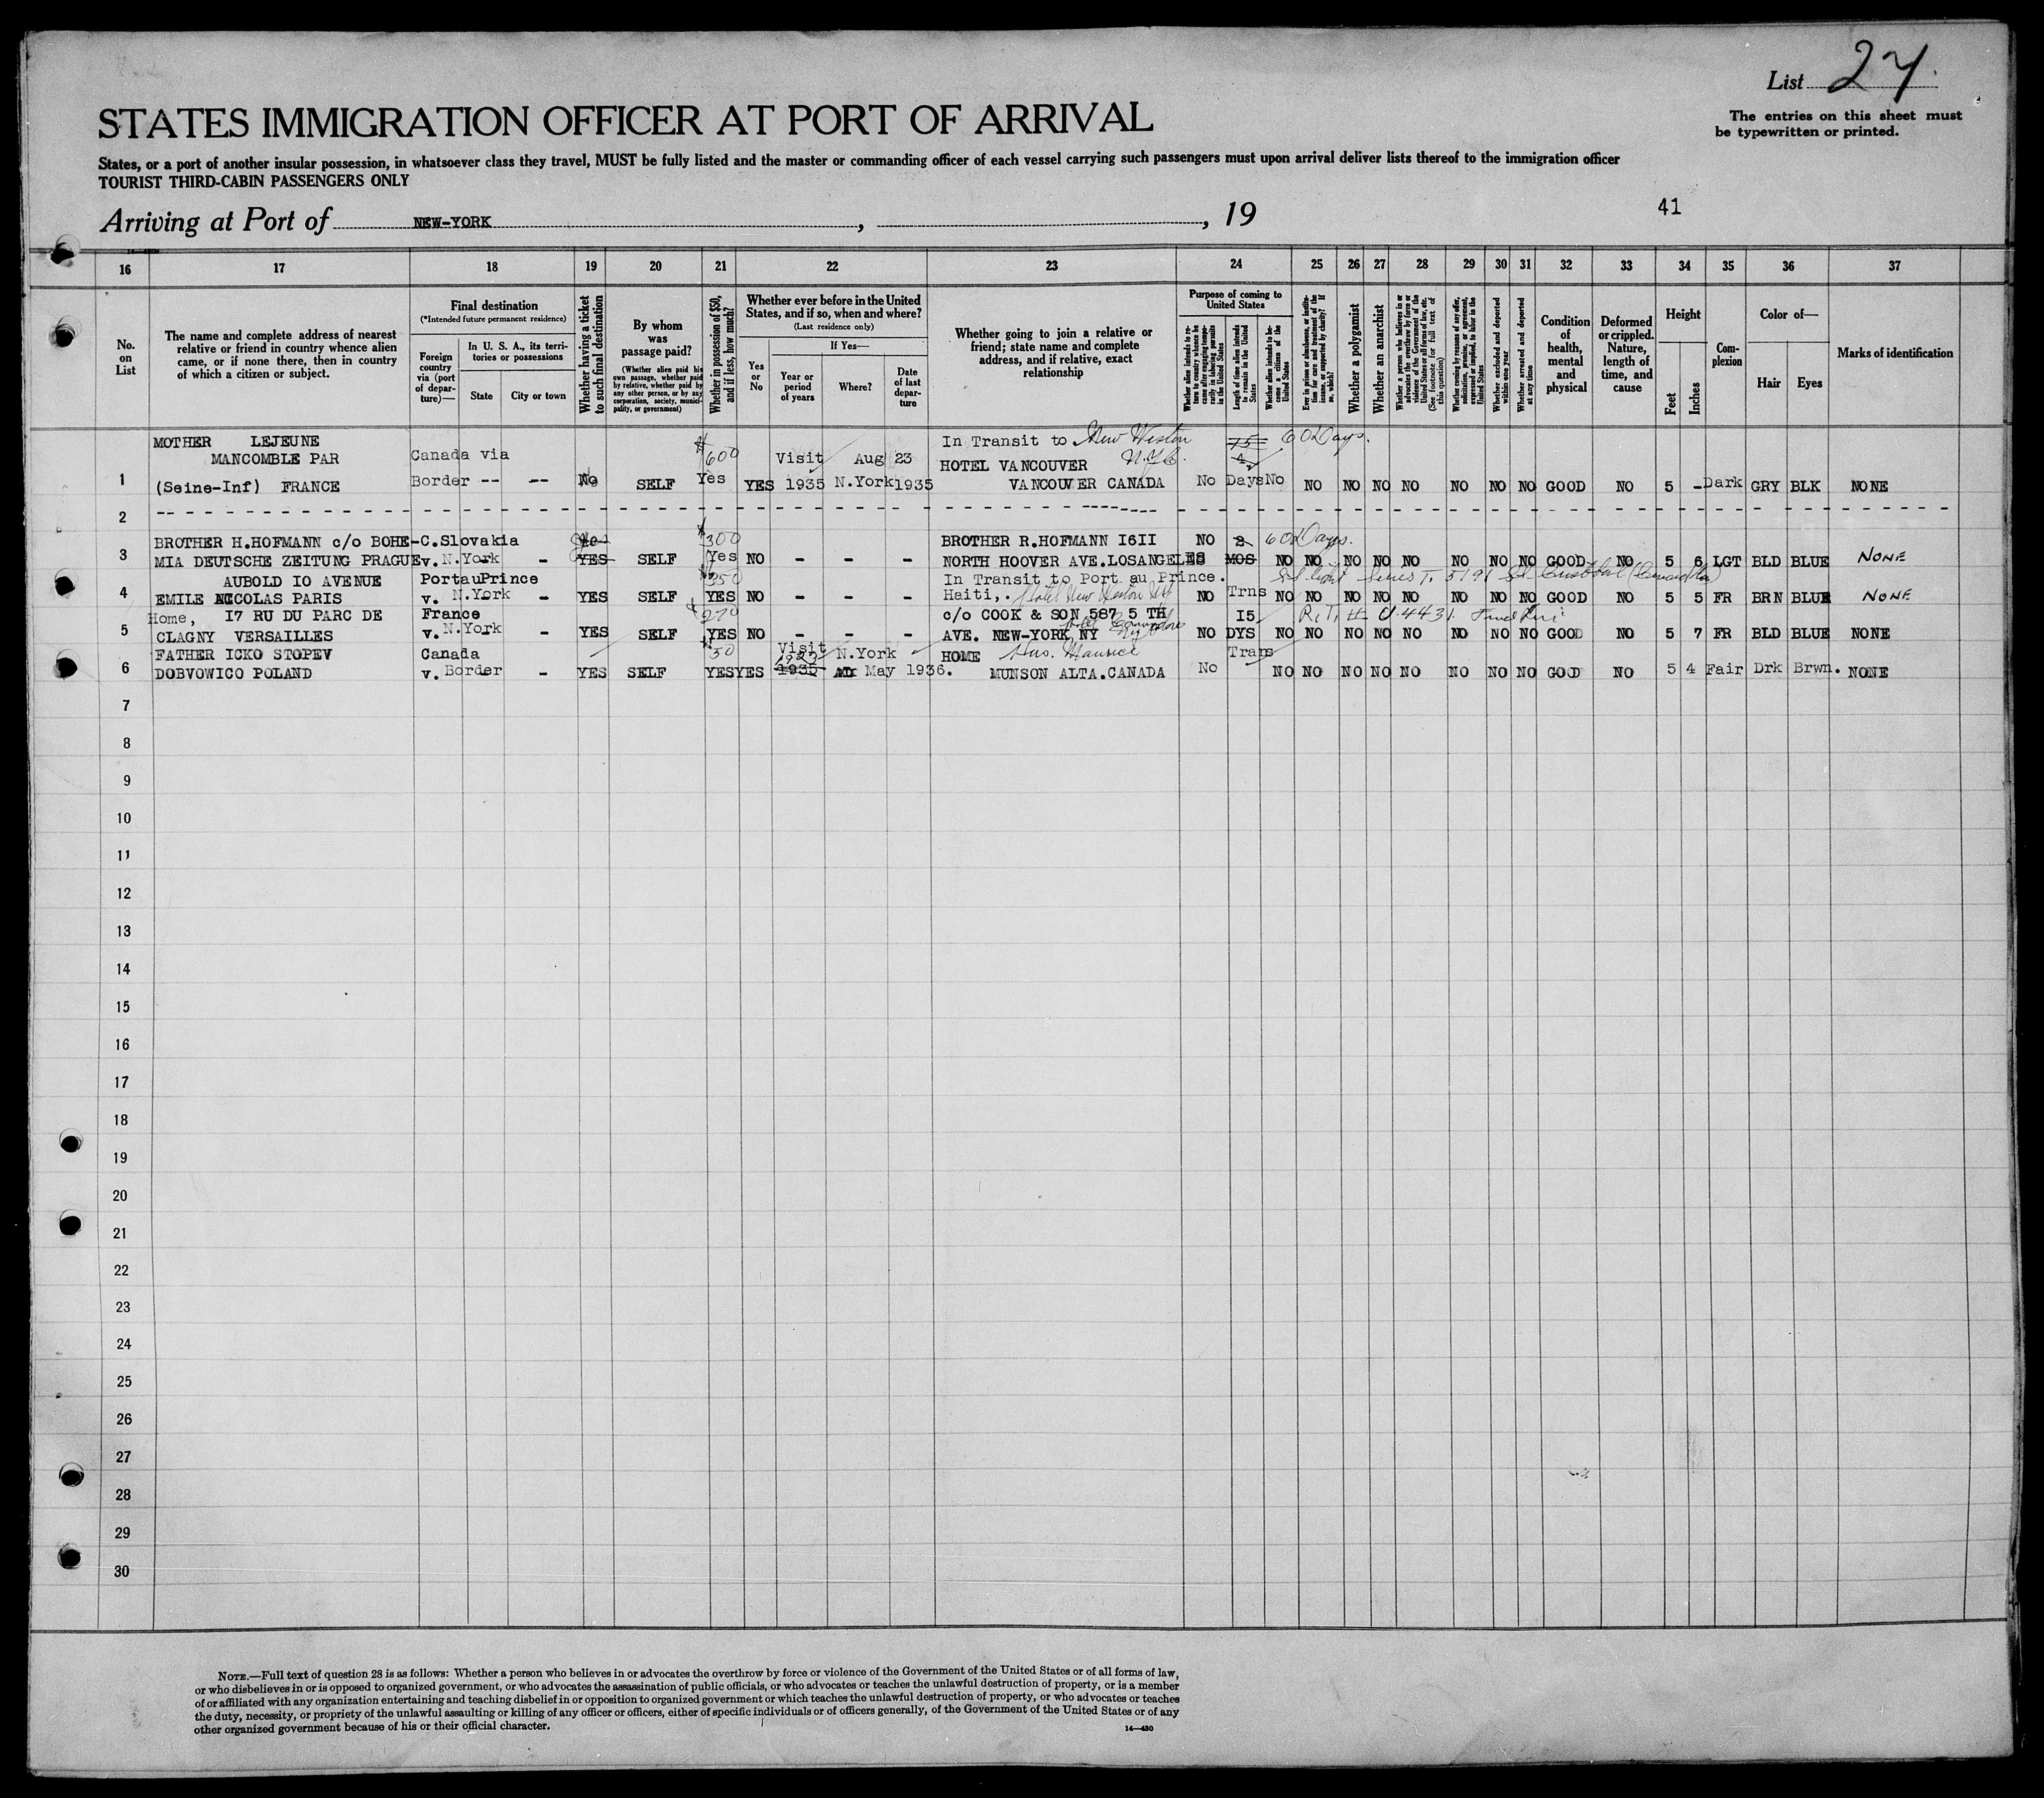 List 27.
The entries on this sheet must
be typewritten or printed.
STATES IMMIGRATION OFFICER AT PORT OF ARRIVAL
States, or a port of another insular possession, in whatsoever class they travel, MUST be fully listed and the master or commanding officer of each vessel carrying such passengers must upon arrival deliver lists thereof to the immigration officer
TOURIST THIRD-CABIN PASSENGERS ONLY
Arriving at Port of NEW-YORK, , 19
41
16 17 18 19 20 21 22 23 24 25 26 27 28 29 30 31 32 33 34 35 36 37
No.
on
List
The name and complete address of nearest
relative or friend in country whence alien
came, or if none there, then in country
of which a citizen or subject.
Final destination
(*Intended future permanent residence)
Foreign
country
via (port
of depar-
ture)—
In U. S. A., its terri-
tories or possessions
State
City or town
Whether having a ticket
to such final destination
By whom
was
passage paid?
(Whether alien paid his
own passage, whether paid
by relative, whether paid by
any other person, or by any
corporation, society, munici-
pality, or government)
Whether in possession of $50,
and if less, how much?
Whether ever before in the United
States, and if so, when and where?
(Last residence only)
Yes
or
No
If Yes—
Year or
period
of years
Where?
Date
of last
depar-
ture
Whether going to join a relative or
friend; state name and complete
address, and if relative, exact
relationship
Purpose of coming to
United States
Whether alien intends to re-
turn to country whence he
came after engaging tempo-
rarily in laboring pursuits
in the United States
Length of time alien intends
to remain in the United
States
Whether alien intends to be-
come a citizen of the
United States
Ever in prison or almshouse, or institu-
tion for care and treatment of the
insane, or supported by charity? If
so, which?
Whether a polygamist
Whether an anarchist
Whether a person who believes in or
advocates the overthrow by force or
violence of the Government of the
United States or all forms of law, etc.
(See footnote for full text of
this question)
Whether coming by reason of any offer,
solicitation, promise, or agreement,
expressed or implied, to labor in the
United States
Whether excluded and deported
within one year
Whether arrested and deported
at any time
Condition
of
health,
mental
and
physical
Deformed
or crippled.
Nature,
length of
time, and
cause
Height
Feet
Inches
Com-
plexion
Color of—
Hair
Eyes
Marks of identification
MOTHER LEJEUNE In Transit to New Weston 15 60 Days.
MANCOMBLE PAR Canada via $600 Visit Aug 23 HOTEL VANCOUVER N.Y.C.
1 (Seine-Inf) FRANCE Border -- -- No SELF Yes YES 1935 N.York 1935 VANCOUVER CANADA No Days No NO NO NO NO NO NO NO GOOD NO 5 - Dark GRY BLK NONE
2
BROTHER H.HOFMANN c/o BOHE- C.Slovakia $300 BROTHER R.HOFMANN I6II NO 2 60 Days.
3 MIA DEUTSCHE ZEITUNG PRAGUE v. N.York - YES SELF Yes NO - - - NORTH HOOVER AVE.LOSANGELES MOS NO NO NO NO NO NO NO NO GOOD NO 5 6 LGT BLD BLUE NONE
AUBOLD IO AVENUE PortauPrince 350 In Transit to Port au Prince.
4 EMILE NICOLAS PARIS v. N.York - YES SELF YES NO - - - Haiti,. Hotel New Weston NO Trns NO NO NO NO NO NO NO NO GOOD NO 5 5 FR BRN BLUE NONE
Home, I7 RU DU PARC DE France 270 c/o COOK & SON 587 5 TH I5
5 CLAGNY VERSAILLES v. N.York - YES SELF YES NO - - - AVE. NEW-YORK NY NO DYS NO NO NO NO NO NO NO NO GOOD NO 5 7 FR BLD BLUE NONE
FATHER ICKO STOPEV Canada 50 Visit N.York HOME Trans
6 DOBVOWICO POLAND v. Border - YES SELF YES YES 1935 May 1936. MUNSON ALTA.CANADA No NO NO NO NO NO NO NO NO GOOD NO 5 4 Fair Drk Brwn. NONE
7
8
9
10
11
12
13
14
15
16
17
18
19
20
21
22
23
24
25
26
27
28
29
30
NOTE.—Full text of question 28 is as follows: Whether a person who believes in or advocates the overthrow by force or violence of the Government of the United States or of all forms of law,
or who disbelieves in or is opposed to organized government, or who advocates the assassination of public officials, or who advocates or teaches the unlawful destruction of property, or is a member
of or affiliated with any organization entertaining and teaching disbelief in or opposition to organized government or which teaches the unlawful destruction of property, or who advocates or teaches
the duty, necessity, or propriety of the unlawful assaulting or killing of any officer or officers, either of specific individuals or of officers generally, of the Government of the United States or of any
other organized government because of his or their official character.
14—430